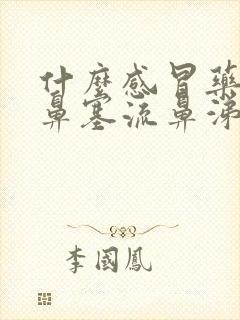 什麼感冒藥
鼻塞流鼻涕
李國鳳